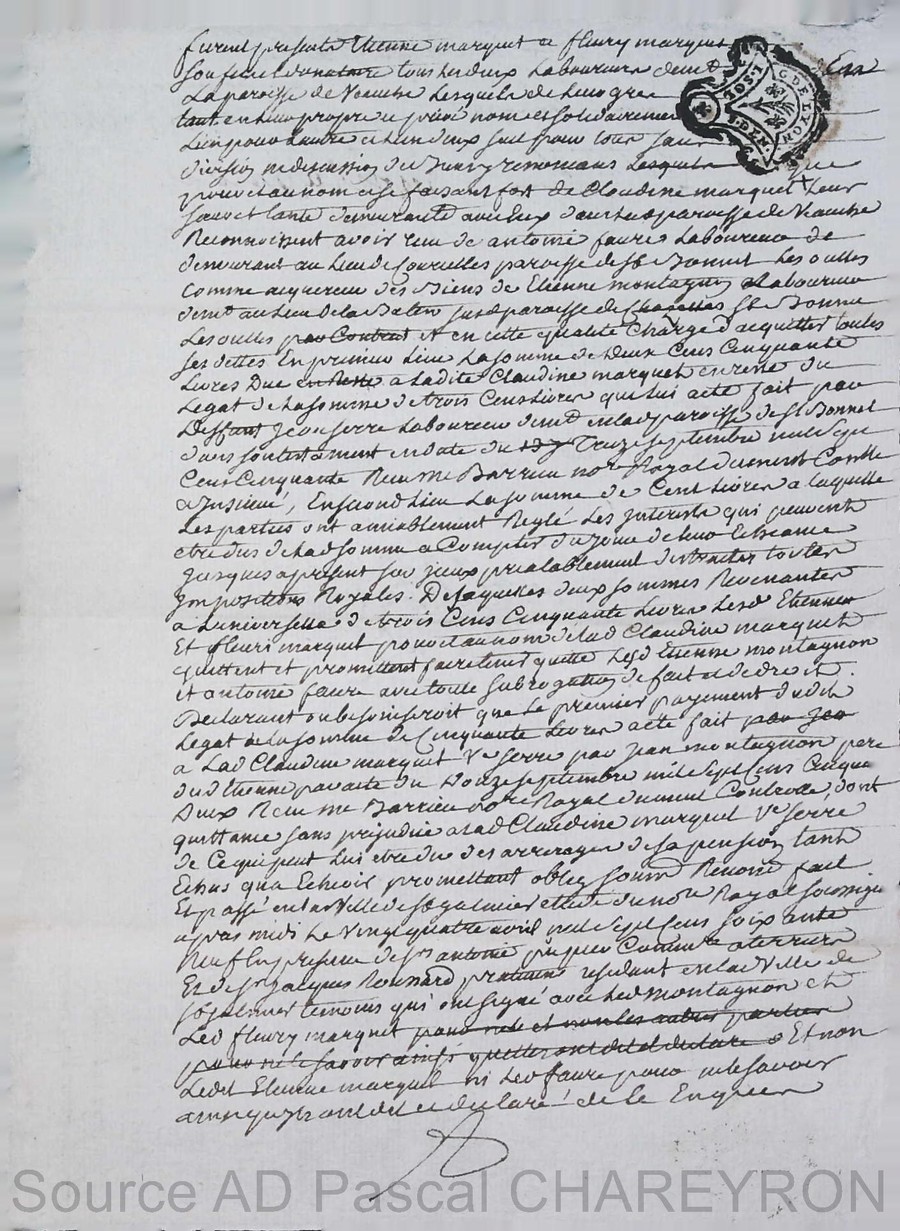 furent presents Etienne marquet et fleury marquet
son fils et donataire tous les deux Laboureurs demt
La paroisse de Veauche Lesquels de Leur gré
tant en Leur propre et privé nom et solidairement
L'un pour Lautre et Lun deux seul pour tous sans
division ni discussion de biens y renoncans Lesquels que
pour et au nom et se faisant fort de Claudine marquet Leur
soeur et tante demeurante avec Eux dans Lad paroisse de Veauche
Reconnoissent avoir reçu de antoine faure Laboureur de
demeurant au Lieu de Courcelles paroisse de St Bonnet Les oulles
Comme acquereur des Biens de Etienne montagnon Laboureur
demt au Lieu de la paroisse de St Bonnet
Les oulles par Contrat et en cette qualité Chargé d'acquitter toutes
ses dettes En premier Lieu La somme de Deux Cens Cinquante
Livres Due en Reste a Ladite Claudine marquet en reste du
Legat de La somme de trois Cens Livres que Lui a été fait par
Deffunt Jean serre Laboureur demt en lad paroisse de St Bonnet
dans son testament en date du Treize septembre mil Sept
Cens Cinquante Recu Me Barrieu nore Royal duement Conollé
et Insinué, En second Lieu La somme de Cent Livres a laquelle
Les parties ont amiablement Reglé Les Interets qui peuvent
etre dus de Lad somme a Compter du Jour de Leur Echeance
Jusques a present sur yceux prealablement distraites toutes
Impositions Royales. Desquelles deux sommes Revenantes
a Luniverselle de trois Cens Cinquante Livres Lesd Etienne
Et fleury marquet pour et au nom de lad Claudine marquet
quittent et promettent faire tenir quitte Lesd Etienne montagnon
et antoine faure avec toute subrogation de fait et de droit.
Declarant ou besoin seroit que Le premier payement dudit
Legat de La somme de Cinquante Livres a été fait par Jean
a Lad Claudine marquet Ve serre par Jean montagnon pere
dud Etienne par acte du Douze septembre mil Sept Cens Cinqte
Deux Recu Me Barrieu nore Royal duement Controllé, dont
quittance sans prejudice a Lad Claudine marquet Ve serre
de Ce qui peut Lui etre du des arrerages de sa pension tant
Echus qu'a Echeoir promettant oblig soum Renonc fait
Et passé en La Ville de St galmier etude du nore Royal soussigné
apres midi Le Vingt quatre avril mil Sept Cens Soixante
Neuf En presence de Sr antoine Commre a terriers
Et de Sr Jacques Ronnard praticien residant en lad Ville de
St galmier temoins qui ont signé avec Led montagnon et
Led fleury marquet pour et non les autres parties
pour ne le savoir ainsi quelles ont dit et declaré Et non
Ledit Etienne marquet ni Led faure pour ne le savoir
ainsi quils ont dit et declaré de ce Enquis
G. DE LYON
Source AD Pascal CHAREYRON